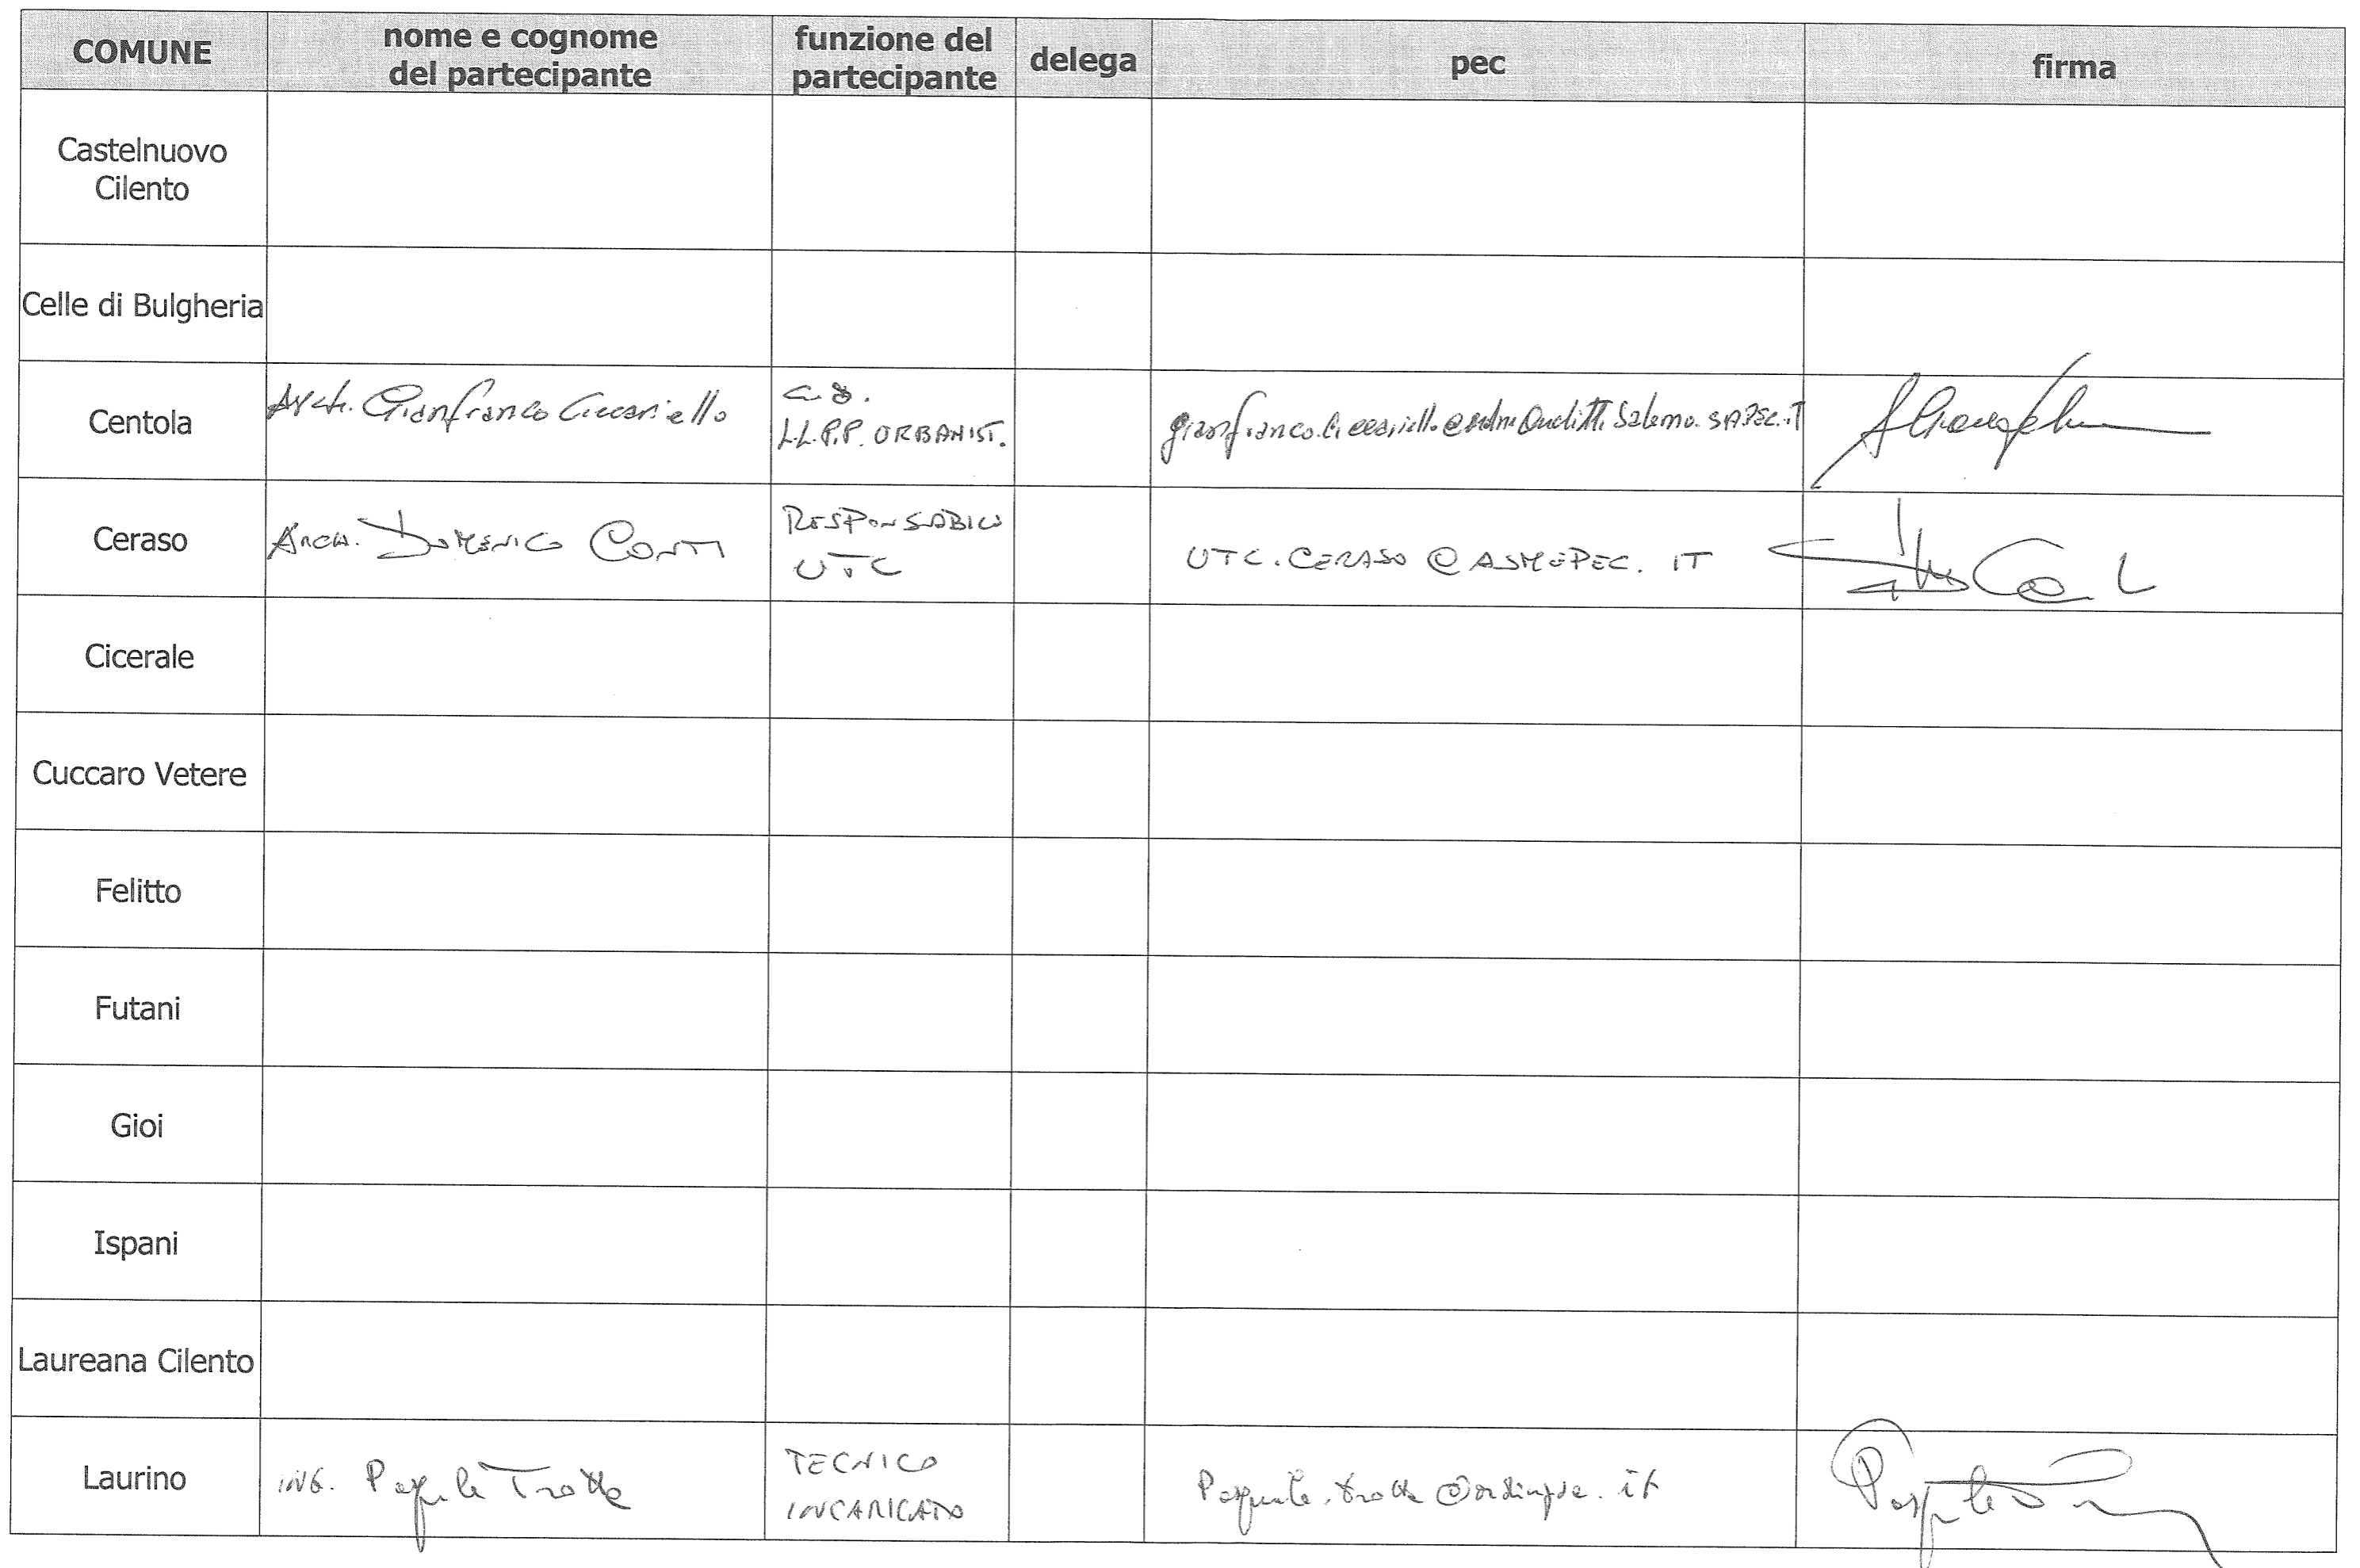 COMUNE
nome e cognome
del partecipante
funzione del
partecipante
delega
pec
firma
Castelnuovo
Cilento
Celle di Bulgheria
Centola
Arch. Gianfranco Ciccariello
L.L.P.P. URBANIST.
Ceraso
Arch. DOMENICO CONTI
RESPONSABILE
UTC
UTC.CERASO@ASMEPEC.IT
Cicerale
Cuccaro Vetere
Felitto
Futani
Gioi
Ispani
Laureana Cilento
Laurino
ING. Pasquale Trotta
TECNICO
INCARICATO
Pasquale.trotta@ordingsa.it